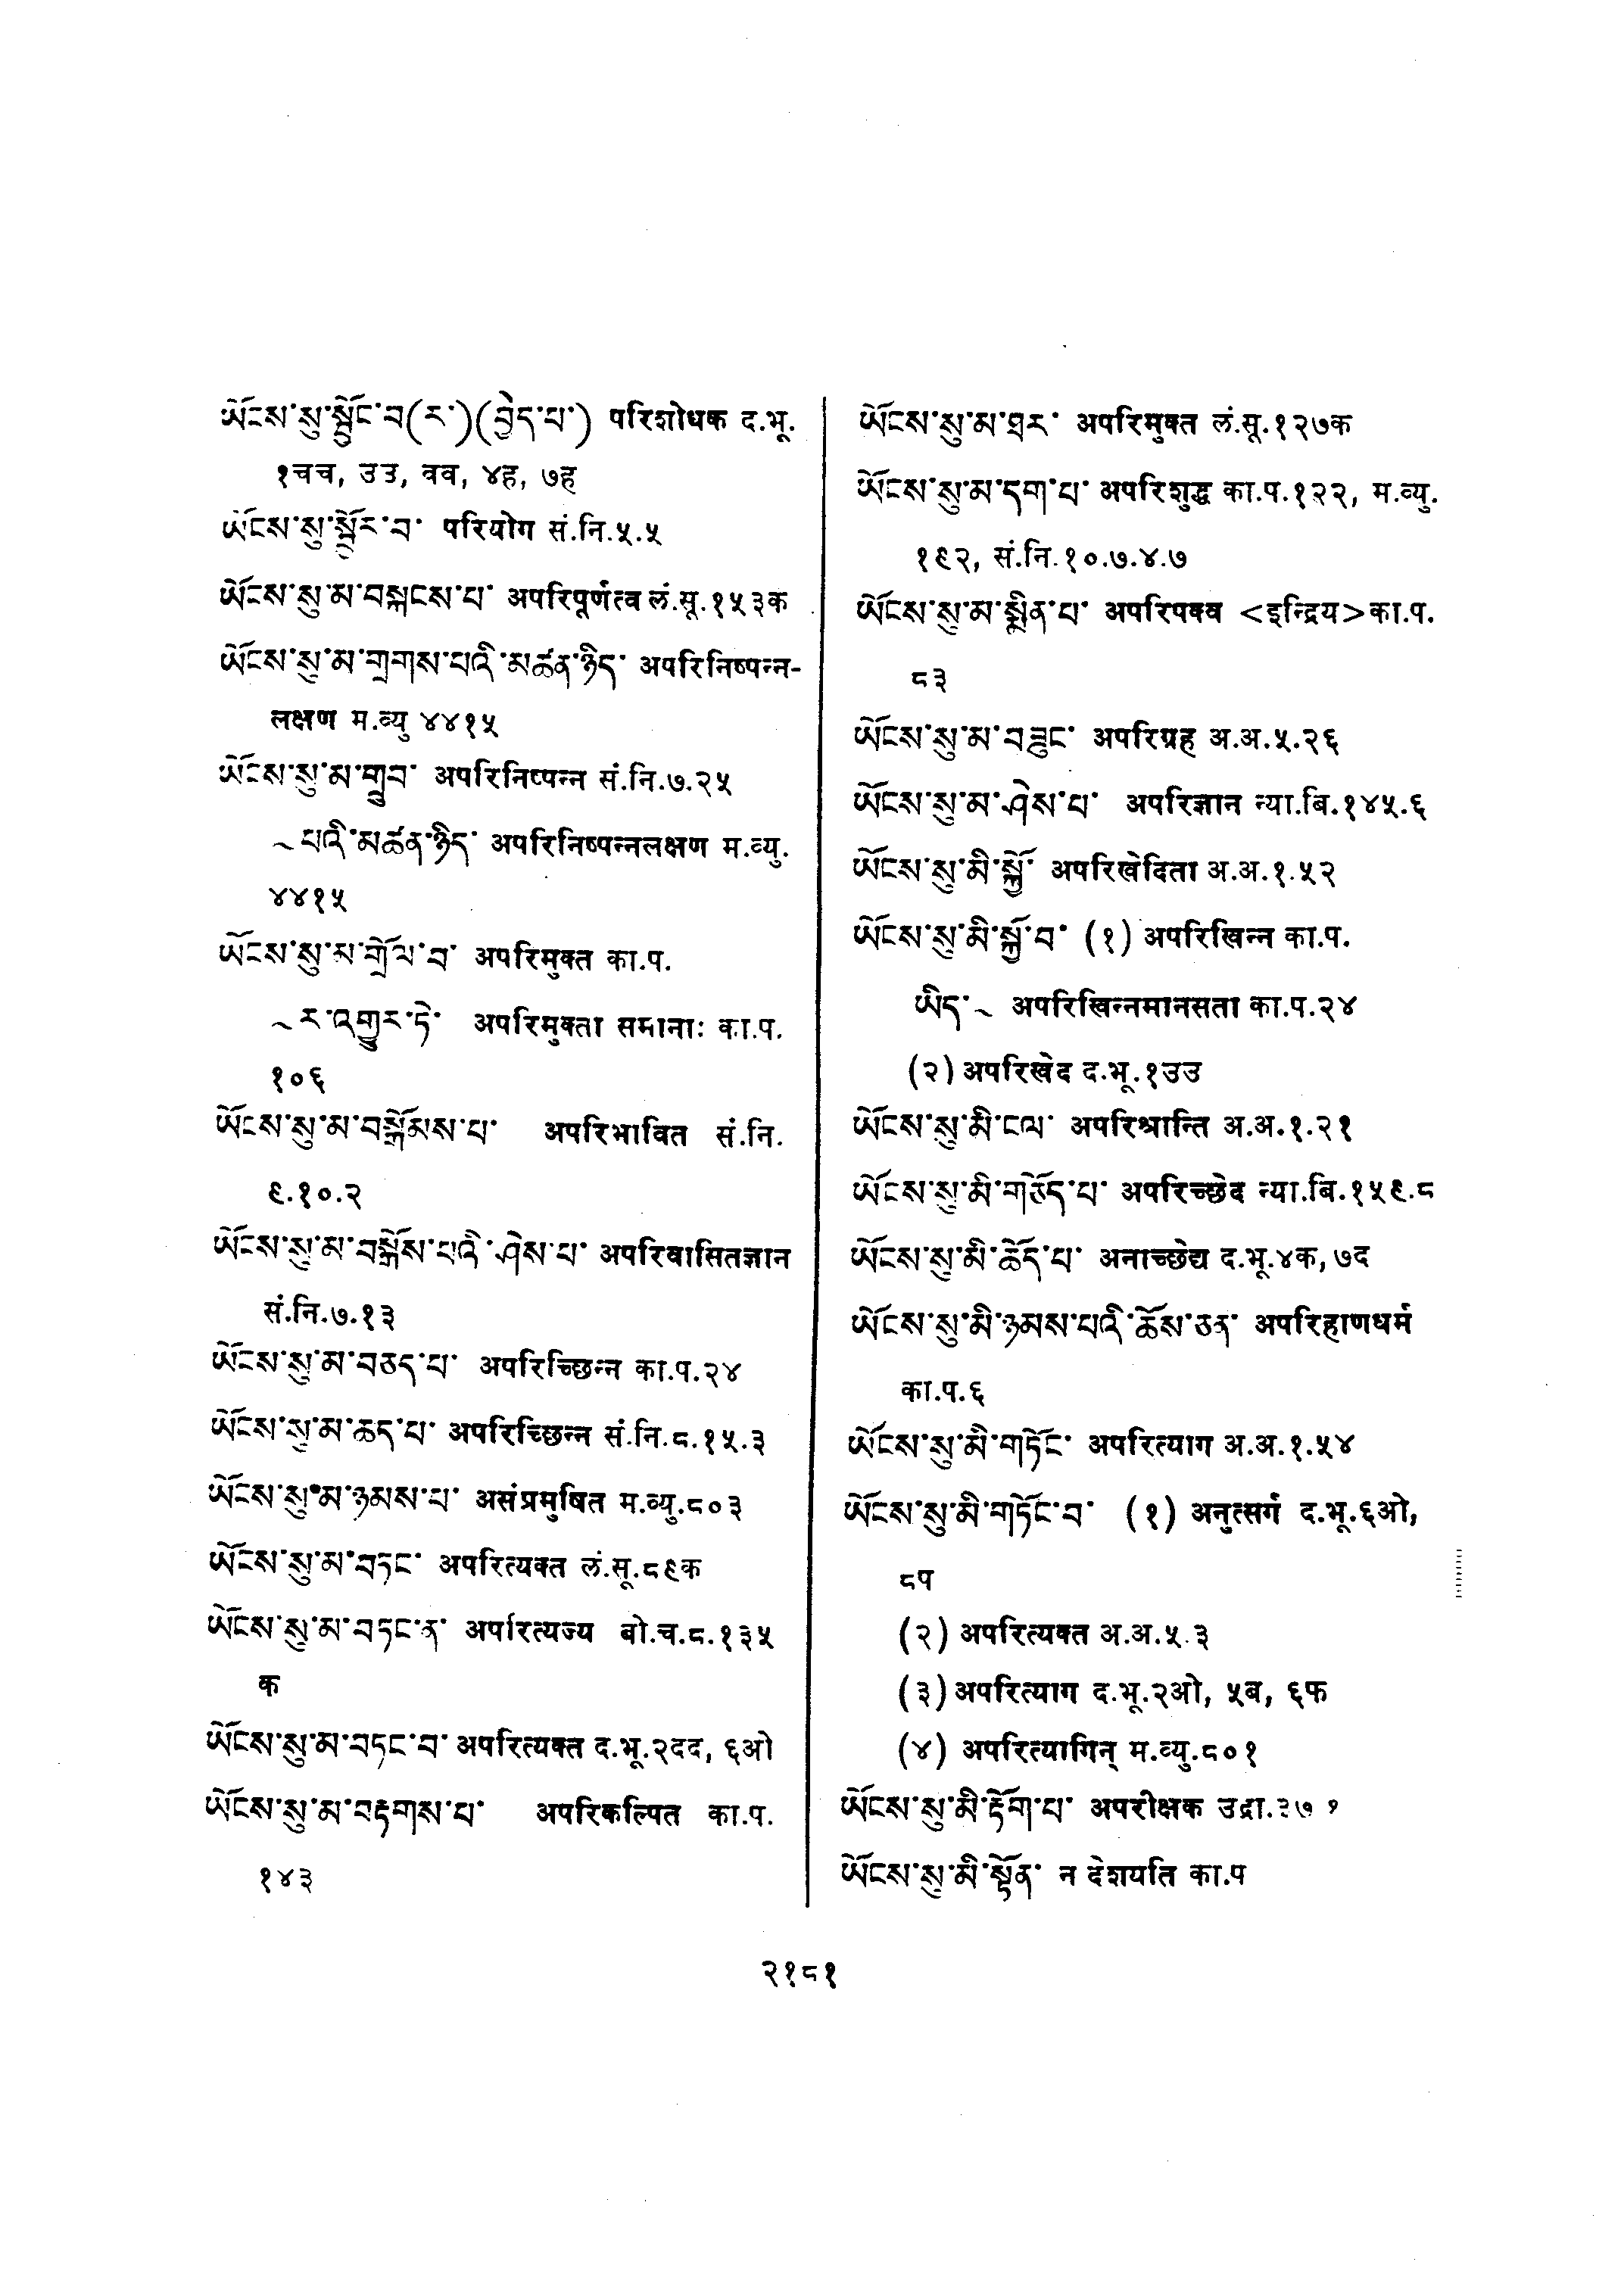 ཡོངས་སུ་སྦྱོང་བ(ར་)(བྱེད་པ་) परिशोधक द.भू.
१चच, उउ, वव, ४ह, ७ह
ཡོངས་སུ་སྦྱོར་བ་ परियोग सं.नि.५.५
ཡོངས་སུ་མ་བསྐངས་པ་ अपरिपूर्णत्व लं.सू.१५३क
ཡོངས་སུ་མ་གྲགས་པའི་མཚན་ཉིད་ अपरिनिष्पन्न-
लक्षण म.व्यु ४४१५
ཡོངས་སུ་མ་གྲུབ་ अपरिनिष्पन्न सं.नि.७.२५
~པའི་མཚན་ཉིད་ अपरिनिष्पन्नलक्षण म.व्यु.
४४१५
ཡོངས་སུ་མ་གྲོལ་བ་ अपरिमुक्त का.प.
~ར་འགྱུར་ཏེ་ अपरिमुक्ता समानाः का.प.
१०६
ཡོངས་སུ་མ་བསྒོམས་པ་ अपरिभावित सं.नि.
९.१०.२
ཡོངས་སུ་མ་བསྒོས་པའི་ཤེས་པ་ अपरिवासितज्ञान
सं.नि.७.१३
ཡོངས་སུ་མ་བཅད་པ་ अपरिच्छिन्न का.प.२४
ཡོངས་སུ་མ་ཆད་པ་ अपरिच्छिन्न सं.नि.८.१५.३
ཡོངས་སུ་མ་ཉམས་པ་ असंप्रमुषित म.व्यु.८०३
ཡོངས་སུ་མ་བཏང་ अपरित्यक्त लं.सू.८९क
ཡོངས་སུ་མ་བཏང་ན་ अपरित्यज्य बो.च.८.१३५
क
ཡོངས་སུ་མ་བཏང་བ་ अपरित्यक्त द.भू.२दद, ६ओ
ཡོངས་སུ་མ་བརྟགས་པ་ अपरिकल्पित का.प.
१४३
ཡོངས་སུ་མ་ཐར་ अपरिमुक्त लं.सू.१२७क
ཡོངས་སུ་མ་དག་པ་ अपरिशुद्ध का.प.१२२, म.व्यु.
१९२, सं.नि.१०.७.४.७
ཡོངས་སུ་མ་སྨིན་པ་ अपरिपक्व <इन्द्रिय>का.प.
८३
ཡོངས་སུ་མ་བཟུང་ अपरिग्रह अ.अ.५.२६
ཡོངས་སུ་མ་ཤེས་པ་ अपरिज्ञान न्या.बि.१४५.६
ཡོངས་སུ་མི་སྐྱོ་ अपरिखेदिता अ.अ.१.५२
ཡོངས་སུ་མི་སྐྱོ་བ་ (१) अपरिखिन्न का.प.
ཡིད་~ अपरिखिन्नमानसता का.प.२४
(२) अपरिखेद द.भू.१उउ
ཡོངས་སུ་མི་ངལ་ अपरिश्रान्ति अ.अ.१.२१
ཡོངས་སུ་མི་གཅོད་པ་ अपरिच्छेद न्या.बि.१५९.८
ཡོངས་སུ་མི་ཆོད་པ་ अनाच्छेद्य द.भू.४क, ७द
ཡོངས་སུ་མི་ཉམས་པའི་ཆོས་ཅན་ अपरिहाणधर्म
का.प.६
ཡོངས་སུ་མི་གཏོང་ अपरित्याग अ.अ.१.५४
ཡོངས་སུ་མི་གཏོང་བ་ (१) अनुत्सर्ग द.भू.६ओ,
८प
(२) अपरित्यक्त अ.अ.५.३
(३) अपरित्याग द.भू.२ओ, ५ब, ६फ
(४) अपरित्यागिन् म.व्यु.८०१
ཡོངས་སུ་མི་རྟོག་པ་ अपरीक्षक उद्रा.३७
ཡོངས་སུ་མི་སྟོན་ न देशयति का.प
२१८१